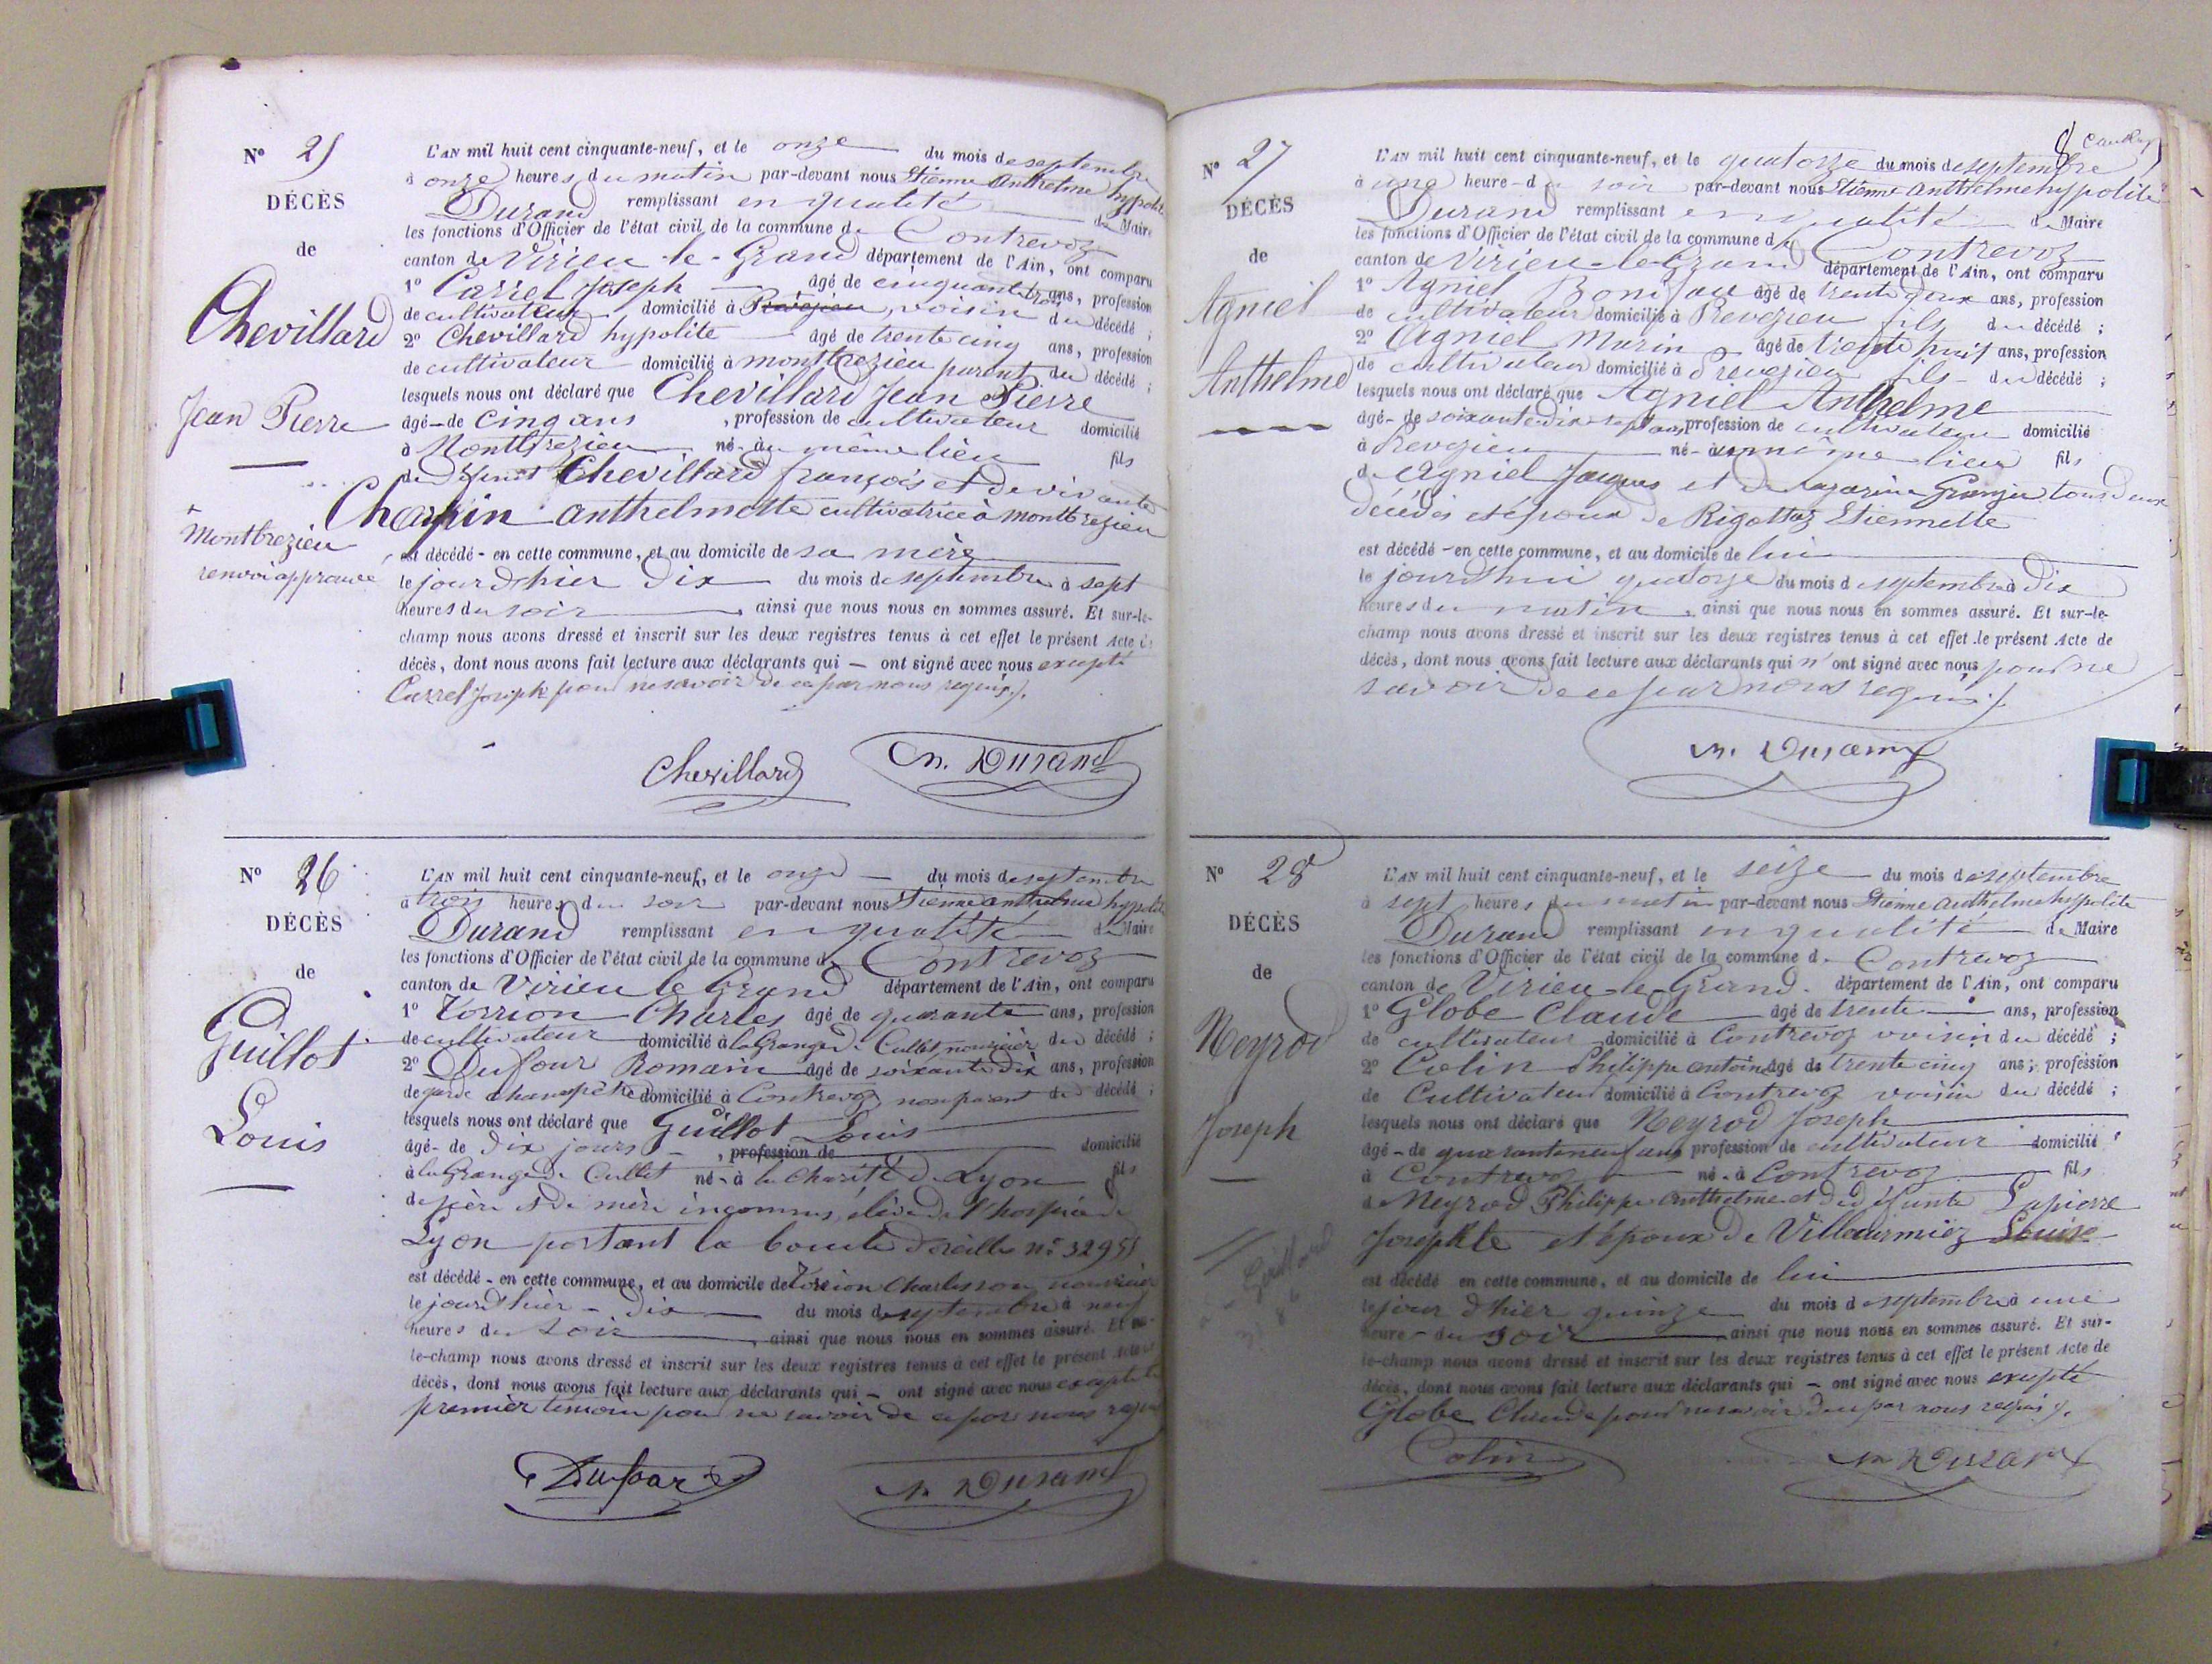 Nº 25
DÉCÈS
de
Chevillard
Jean Pierre
Montbrezieu
renvoi approuvé
L'AN mil huit cent cinquante-neuf, et le onze du mois de septembre
à onze heures du matin par-devant nous Etienne Anthelme hypolite
Durand remplissant en qualité de Maire
les fonctions d'Officier de l'état civil de la commune de Contrevoz
canton de Virieu-le-Grand département de l'Ain, ont comparu
1º Carrel Joseph âgé de cinquante trois ans, profession
de cultivateur, domicilié à Prevezieu, voisin du décédé ;
2º Chevillard hypolite âgé de trente cinq ans, profession
de cultivateur domicilié à montbrezieu parent du décédé ;
lesquels nous ont déclaré que Chevillard Jean Pierre
âgé de cinq ans, profession de cultivateur domicilié
à Montbrezieu né au même lieu fils
de défunt Chevillard françois et de vivante
Charpin anthelmette cultivatrice à Montbrezieu
est décédé en cette commune, et au domicile de sa mère
le jour d'hier dix du mois de septembre à sept
heures du soir, ainsi que nous nous en sommes assuré. Et sur-le-
champ nous avons dressé et inscrit sur les deux registres tenus à cet effet le présent Acte de
décès, dont nous avons fait lecture aux déclarants qui — ont signé avec nous excepté
Carrel Joseph pour ne savoir de ce par nous requis.
Chevillard Durand
Nº 26
DÉCÈS
de
Guillot
Louis
L'AN mil huit cent cinquante-neuf, et le onze du mois de septembre
à trois heures du soir par-devant nous Etienne anthelme hypolite
Durand remplissant en qualité de Maire
les fonctions d'Officier de l'état civil de la commune de Contrevoz
canton de Virieu le Grand département de l'Ain, ont comparu
1º Torrion Charles âgé de quarante ans, profession
de cultivateur domicilié à la Grange de Cullet nourricier du décédé ;
2º Dufour Romain âgé de soixante dix ans, profession
de garde champêtre domicilié à Contrevoz non parent du décédé ;
lesquels nous ont déclaré que Guillot Louis
âgé de dix jours, profession de domicilié
à la Grange de Cullet né à la Charité de Lyon fils
de père et de mère inconnus, élève de l'hospice de
Lyon portant la boucle d'oreille nº 32955
est décédé en cette commune, et au domicile de Torrion Charles son nourricier
le jour d'hier dix du mois de septembre à neuf
heures du soir, ainsi que nous nous en sommes assuré. Et sur-
le-champ nous avons dressé et inscrit sur les deux registres tenus à cet effet le présent Acte de
décès, dont nous avons fait lecture aux déclarants qui — ont signé avec nous excepté le
premier témoin pour ne savoir de ce par nous requis
Dufour Durand
Nº 27
DÉCÈS
de
Agniel
Anthelme
L'AN mil huit cent cinquante-neuf, et le quatorze du mois de septembre
à une heure du soir par-devant nous Etienne anthelme hypolite
Durand remplissant en qualité de Maire
les fonctions d'Officier de l'état civil de la commune de Contrevoz
canton de Virieu-le-Grand département de l'Ain, ont comparu
1º Agniel Boniface âgé de trente deux ans, profession
de cultivateur domicilié à Prevezieu fils du décédé ;
2º Agniel Marin âgé de trente huit ans, profession
de cultivateur domicilié à Prevezieu fils du décédé ;
lesquels nous ont déclaré que Agniel Anthelme
âgé de soixante dix sept ans, profession de cultivateur domicilié
à Prevezieu né au même lieu fils
de Agniel Jacques et de Lazarine Granjer tous deux
décédés et époux de Rigottaz Etiennette
est décédé en cette commune, et au domicile de lui
le jourd'hui quatorze du mois de septembre à dix
heures du matin, ainsi que nous nous en sommes assuré. Et sur-le-
champ nous avons dressé et inscrit sur les deux registres tenus à cet effet le présent Acte de
décès, dont nous avons fait lecture aux déclarants qui n'ont signé avec nous pour ne
savoir de ce par nous requis
Durand
Nº 28
DÉCÈS
de
Neyrod
Joseph
L'AN mil huit cent cinquante-neuf, et le seize du mois de septembre
à sept heures du matin par-devant nous Etienne Anthelme hypolite
Durand remplissant en qualité de Maire
les fonctions d'Officier de l'état civil de la commune de Contrevoz
canton de Virieu-le-Grand département de l'Ain, ont comparu
1º Globe Claude âgé de trente ans, profession
de cultivateur domicilié à Contrevoz voisin du décédé ;
2º Colin Philippe antoine âgé de trente cinq ans, profession
de Cultivateur domicilié à Contrevoz voisin du décédé ;
lesquels nous ont déclaré que Neyrod Joseph
âgé de quarante neuf ans profession de cultivateur domicilié
à Contrevoz né à Contrevoz fils
de Neyrod Philippe Anthelme et de défunte Lapierre
Josephte et époux de Villeurmiez Louise
est décédé en cette commune, et au domicile de lui
le jour d'hier quinze du mois de septembre à une
heure du soir, ainsi que nous nous en sommes assuré. Et sur-
le-champ nous avons dressé et inscrit sur les deux registres tenus à cet effet le présent Acte de
décès, dont nous avons fait lecture aux déclarants qui — ont signé avec nous excepté
Globe Claude pour ne savoir de ce par nous requis.
Colin Durand